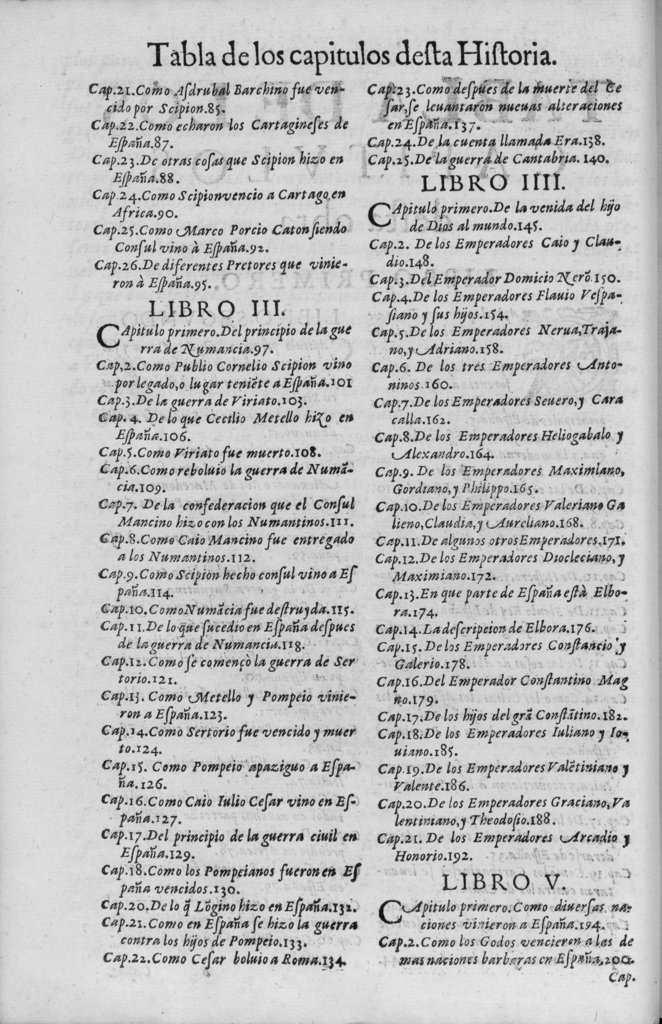 Tabla de los capitulos desta Historia.
Cap.21.Como Asdrubal Barchino fue ven-
cido por Scipion.85.
Cap.22.Como echaron los Cartagineses de
España.87.
Cap.23.De otras cosas que Scipion hizo en
España.88.
Cap 24.Como Scipion vencio a Cartago en
Africa.90.
Cap.25.Como Marco Porcio Caton siendo
Consul vino à España.92.
Cap.26.De diferentes Pretores que vinie-
ron à España.95.
LIBRO III.
CApitulo primero.Del principio de la gue
rra de Numancia.97.
Cap,2.Como Publio Cornelio Scipion vino
por legado,o lugar teniẽte a España.101
Cap.3.De la guerra de Viriato.103.
Cap. 4. De lo que Cecilio Metello hizo en
España.106.
Cap.5.Como Viriato fue muerto.108.
Cap.6.Como reboluio la guerra de Numã-
cia.109.
Cap.7. De la confederacion que el Consul
Mancino hizo con los Numantinos.111.
Cap.8.Como Caio Mancino fue entregado
a los Numantinos.112.
Cap.9.Como Scipion hecho consul vino a Es
paña.114.
Cap.10.Como Numãcia fue destruyda.115.
Cap.11.De lo que sucedio en España despues
de la guerra de Numancia.118.
Cap.12.Como se començò la guerra de Ser
torio.121.
Cap.13. Como Metello y Pompeio vinie-
ron a España.123.
Cap.14.Como Sertorio fue vencido y muer
to.124.
Cap.15. Como Pompeio apaziguo a Espa-
ña.126.
Cap.16.Como Caio Iulio Cesar vino en Es-
paña.127.
Cap.17.Del principio de la guerra ciuil en
España.129.
Cap.18.Como los Pompeianos fueron en Es
paña vencidos.130.
Cap.20.De lo q̃ Lõgino hizo en España.132.
Cap.21. Como en España se hizo la guerra
contra los hijos de Pompeio.133.
Cap.22.Como Cesar boluio a Roma.134.
Cap.23.Como despues de la muerte del Ce
sar,se leuantaron nueuas alteraciones
en España.137.
Cap.24.De la cuenta llamada Era.138.
Cap.25.De la guerra de Cantabria. 140.
LIBRO IIII.
CApitulo primero.De la venida del hijo
de Dios al mundo.145.
Cap.2. De los Emperadores Caio y Clau-
dio.148.
Cap.3.Del Emperador Domicio Nerõ.150.
Cap.4.De los Emperadores Flauio Vespa-
siano y sus hijos.154.
Cap.5.De los Emperadores Nerua,Traja-
no,y Adriano.158.
Cap.6. De los tres Emperadores Anto-
ninos.160.
Cap.7.De los Emperadores Seuero,y Cara
calla.162.
Cap.8.De los Emperadores Heliogabalo y
Alexandro.164.
Cap.9. De los Emperadores Maximiano,
Gordiano,y Philippo.165.
Cap.10.De los Emperadores Valeriano Ga
lieno,Claudia,y Aureliano.168.
Cap.11.De algunos otros Emperadores.171.
Cap.12.De los Emperadores Diocleciano,y
Maximiano.172.
Cap.13.En que parte de España està Elbo-
ra.174.
Cap.14.La descripcion de Elbora.176.
Cap.15.De los Emperadores Constancio y
Galerio.178.
Cap.16.Del Emperador Constantino Mag
no.179.
Cap.17.De los hijos del grã Constãtino.182.
Cap.18.De los Emperadores Iuliano y Io-
uiano.185.
Cap.19.De los Emperadores Valẽtiniano y
Valente.186.
Cap.20.De los Emperadores Graciano,Va
lentiniano,y Theodosio.188.
Cap.21. De los Emperadores Arcadio y
Honorio.192.
LIBRO V.
CApitulo primero.Como diuersas na-
ciones vinieron a España.194.
Cap.2.Como los Godos vencieron a las de
mas naciones barbaras en España.200.
Cap.